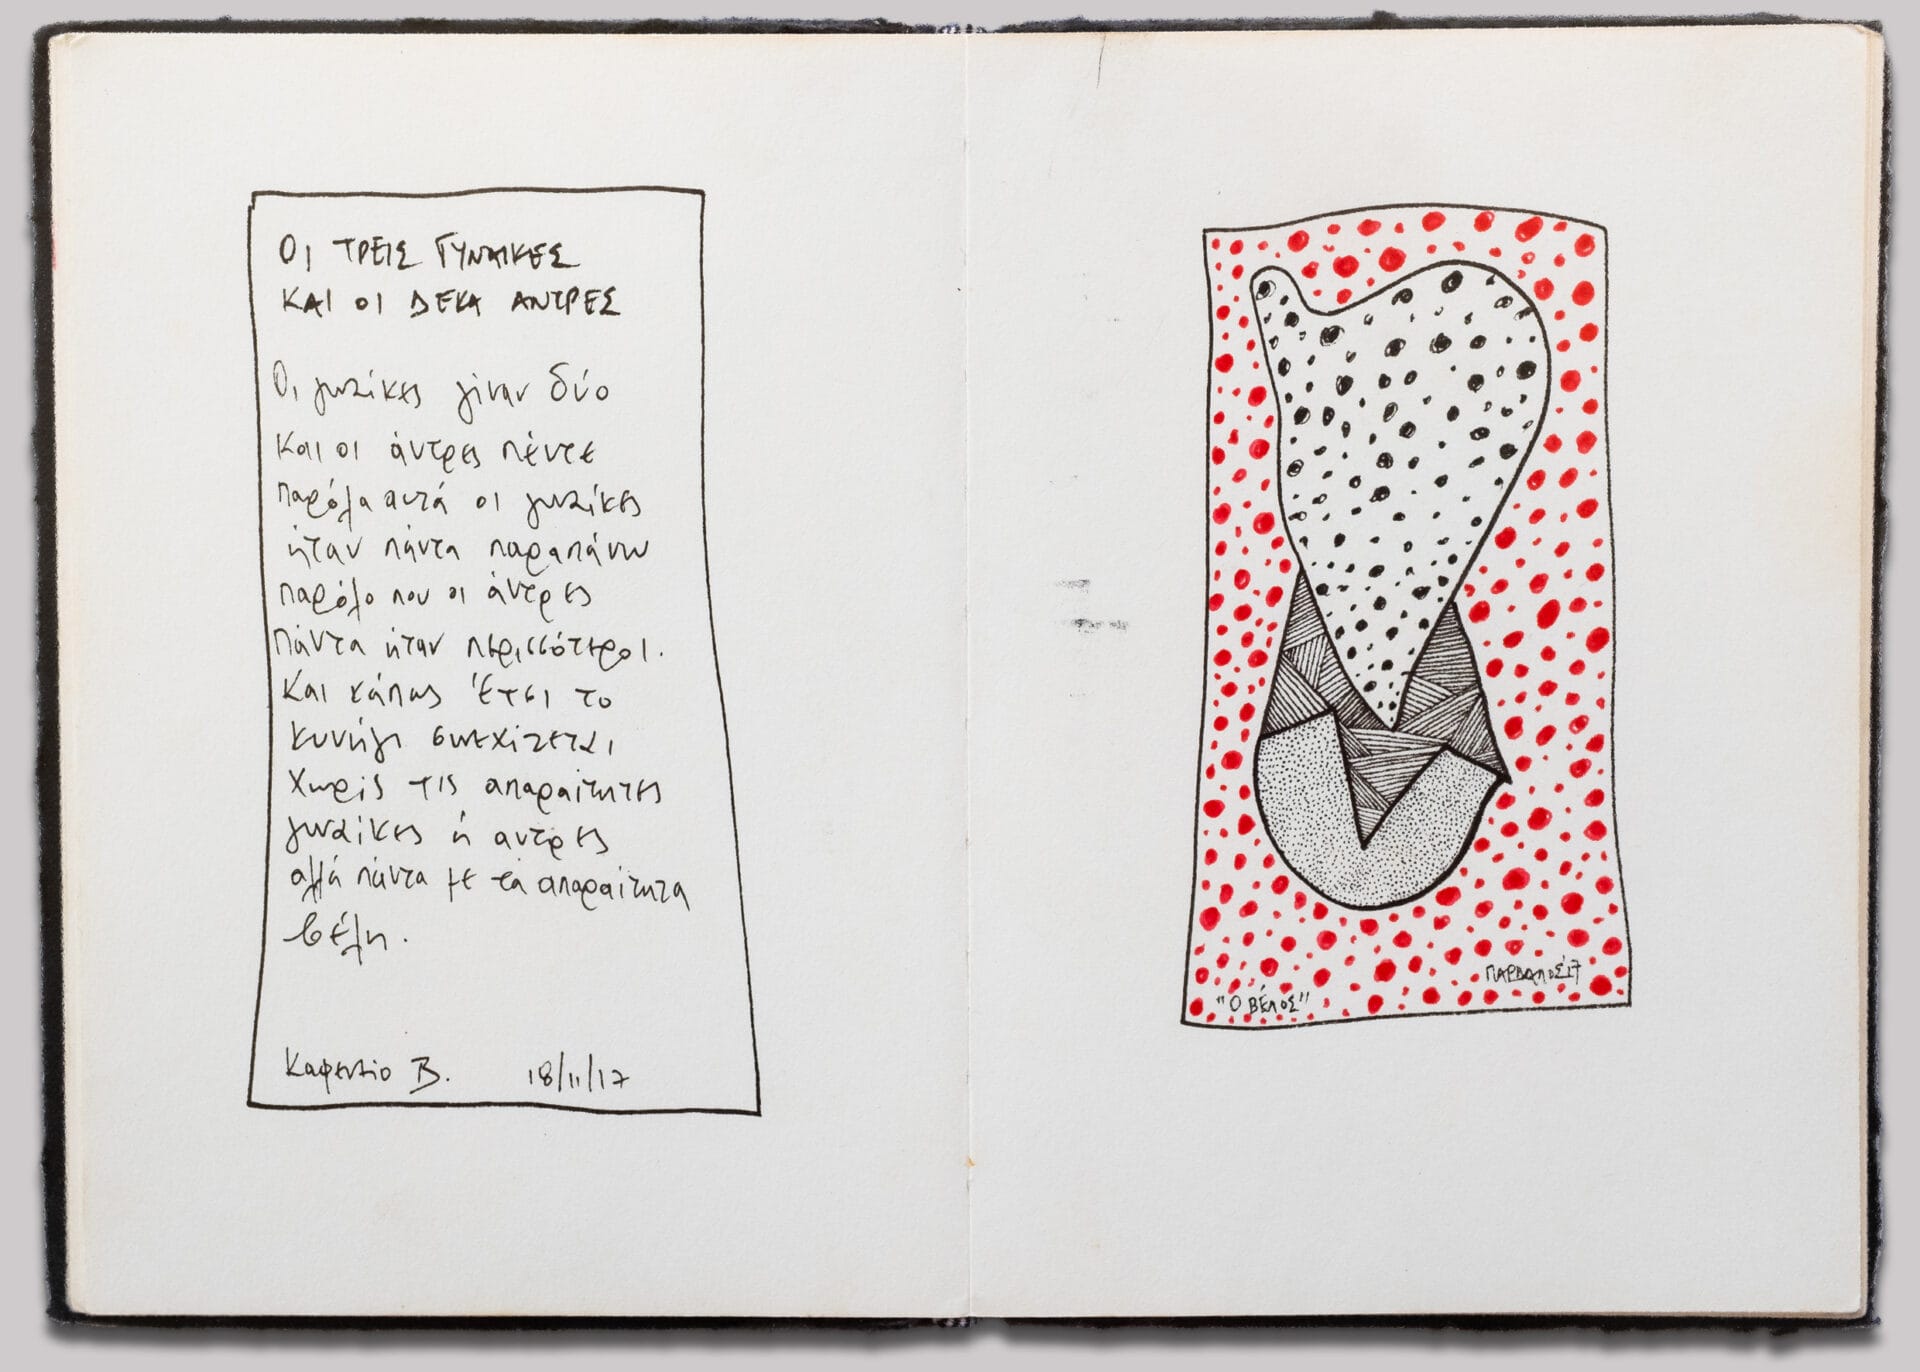 ΟΙ ΤΡΕΙΣ ΓΥΝΑΙΚΕΣ
ΚΑΙ ΟΙ ΔΕΚΑ ΑΝΤΡΕΣ
Οι γυναίκες γίναν δύο
και οι άντρες πέντε
παρόλα αυτά οι γυναίκες
ήταν πάντα παραπάνω
παρόλο που οι άντρες
πάντα ήταν περισσότεροι.
Και κάπως έτσι το
κυνήγι συνεχίζεται
χωρίς τις απαραίτητες
γυναίκες ή αντρες
αλλά πάντα με τα απαραίτητα
βέλη.
Καφενείο Β. 18/11/17
"Ο ΒΕΛΟΣ"
ΠΑΡΔΑΛΟΣ'17